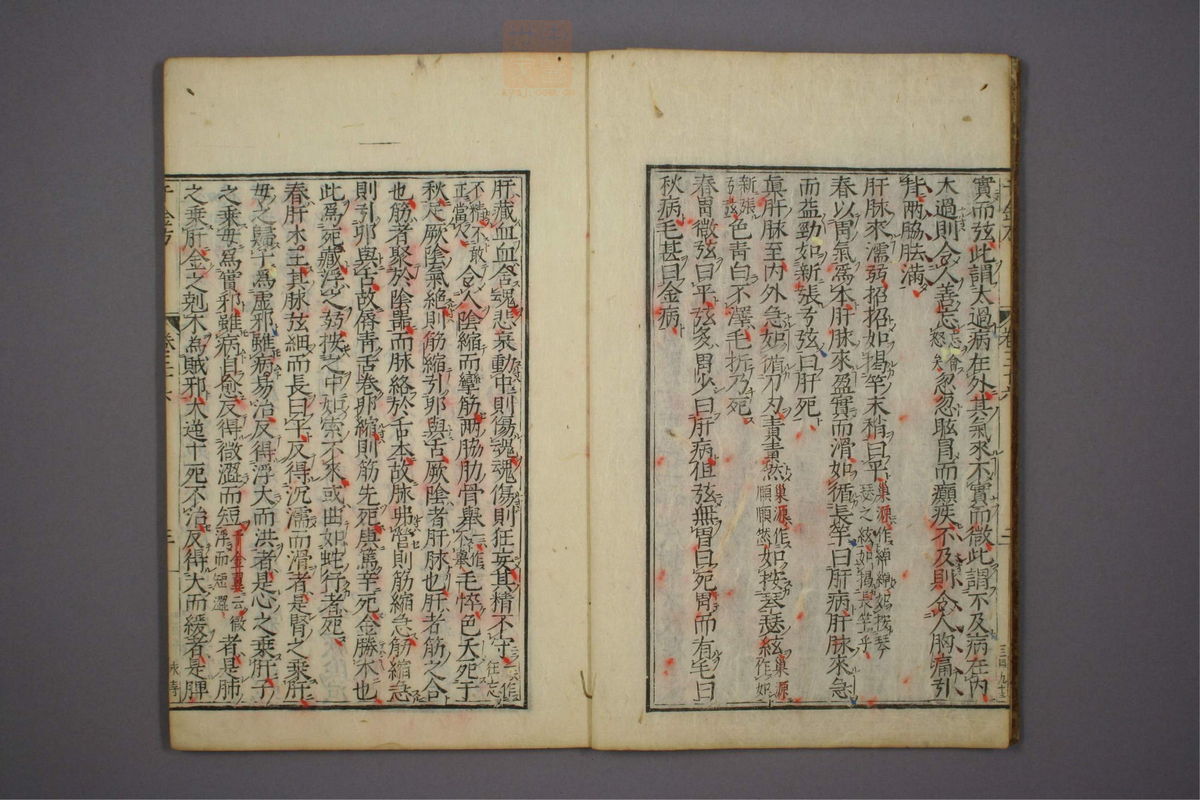 實而弦此謂太過病在外其氣來不實而微此謂不及病在內
太過則令人善忘忽忽眩冒而癲疾不及則令人胸痛引
背兩脇胠滿
肝脉來濡弱招招如揭竿末稍曰平巢源作綽綽如按琴瑟之絃如揭長竿
春以胃氣爲本肝脉來盈實而滑如循長竿曰肝病肝脉來急
而益勁如新張弓弦曰肝死
眞肝脉至內外急如循刀刃責責然巢源作賾賾然如按琴瑟絃巢源作如
新張弓弦色青白不澤毛折乃死
春胃微弦曰平弦多胃少曰肝病但弦無胃曰死胃而有毛曰
秋病毛甚曰金病
肝藏血血舍魂悲哀動中則傷魂魂傷則狂妄其精不守一作
不精不敢正當人令人陰縮而攣筋兩脇肋骨舉一作不舉毛悴色夭死于
秋足厥陰氣絕則筋縮引卵與舌厥陰者肝脉也肝者筋之合
也筋者聚於陰器而脉絡於舌本故脉弗營則筋縮急筋縮急
則引卵與舌故脣青舌卷卵縮則筋先死庚篤辛死金勝木也
此爲死藏浮之弱按之中如索不來或曲如蛇行者死
春肝木王其脉弦細而長曰平反得沉濡而滑者是腎之乘肝
母之歸子爲虛邪雖病易治反得浮大而洪者是心之乘肝子
之乘母爲實邪雖病自愈反得微澀而短千金翼云微浮而短澀者是肺
之乘肝金之剋木爲賊邪大逆十死不治反得大而緩者是脾